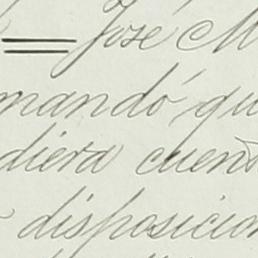 José M
mandó qu
diera cuent
disposicion